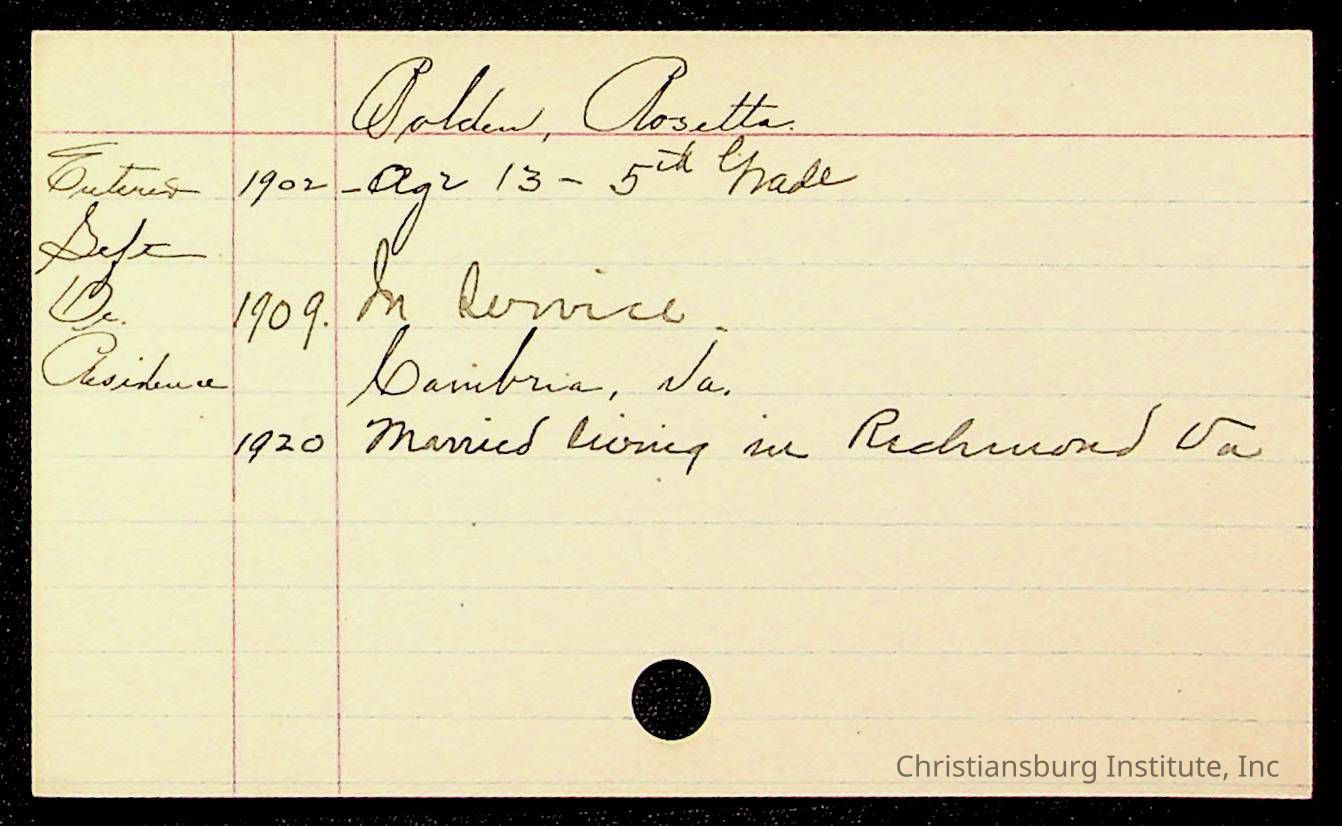 Bolden, Rosetta.
Entered 1902 - Age 13 - 5th Grade
Sept
De. 1909. In Service.
Residence Cambria, Va.
1920 Married living in Richmond Va
Christiansburg Institute, Inc